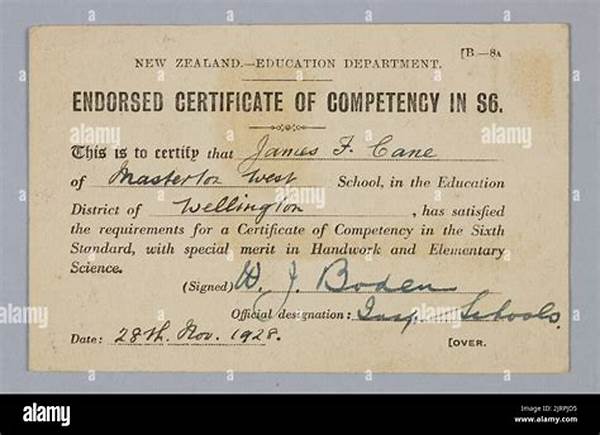 [B.—8A
NEW ZEALAND.—EDUCATION DEPARTMENT.
ENDORSED CERTIFICATE OF COMPETENCY IN S6.
This is to certify that James F. Cane
of Masterton West School, in the Education
District of Wellington, has satisfied
the requirements for a Certificate of Competency in the Sixth
Standard, with special merit in Handwork and Elementary
Science.
(Signed) W. J. Boden
Official designation: Insp. Schools.
Date: 28th. Nov. 1928.
[OVER.
alamy
alamy
alamy
alamy
alamy
alamy
alamy
alamy
Image ID: 2JRPJD5
www.alamy.com